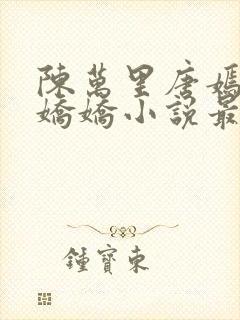 陳萬里唐嫣
嬌嬌小說最
鍾寶東